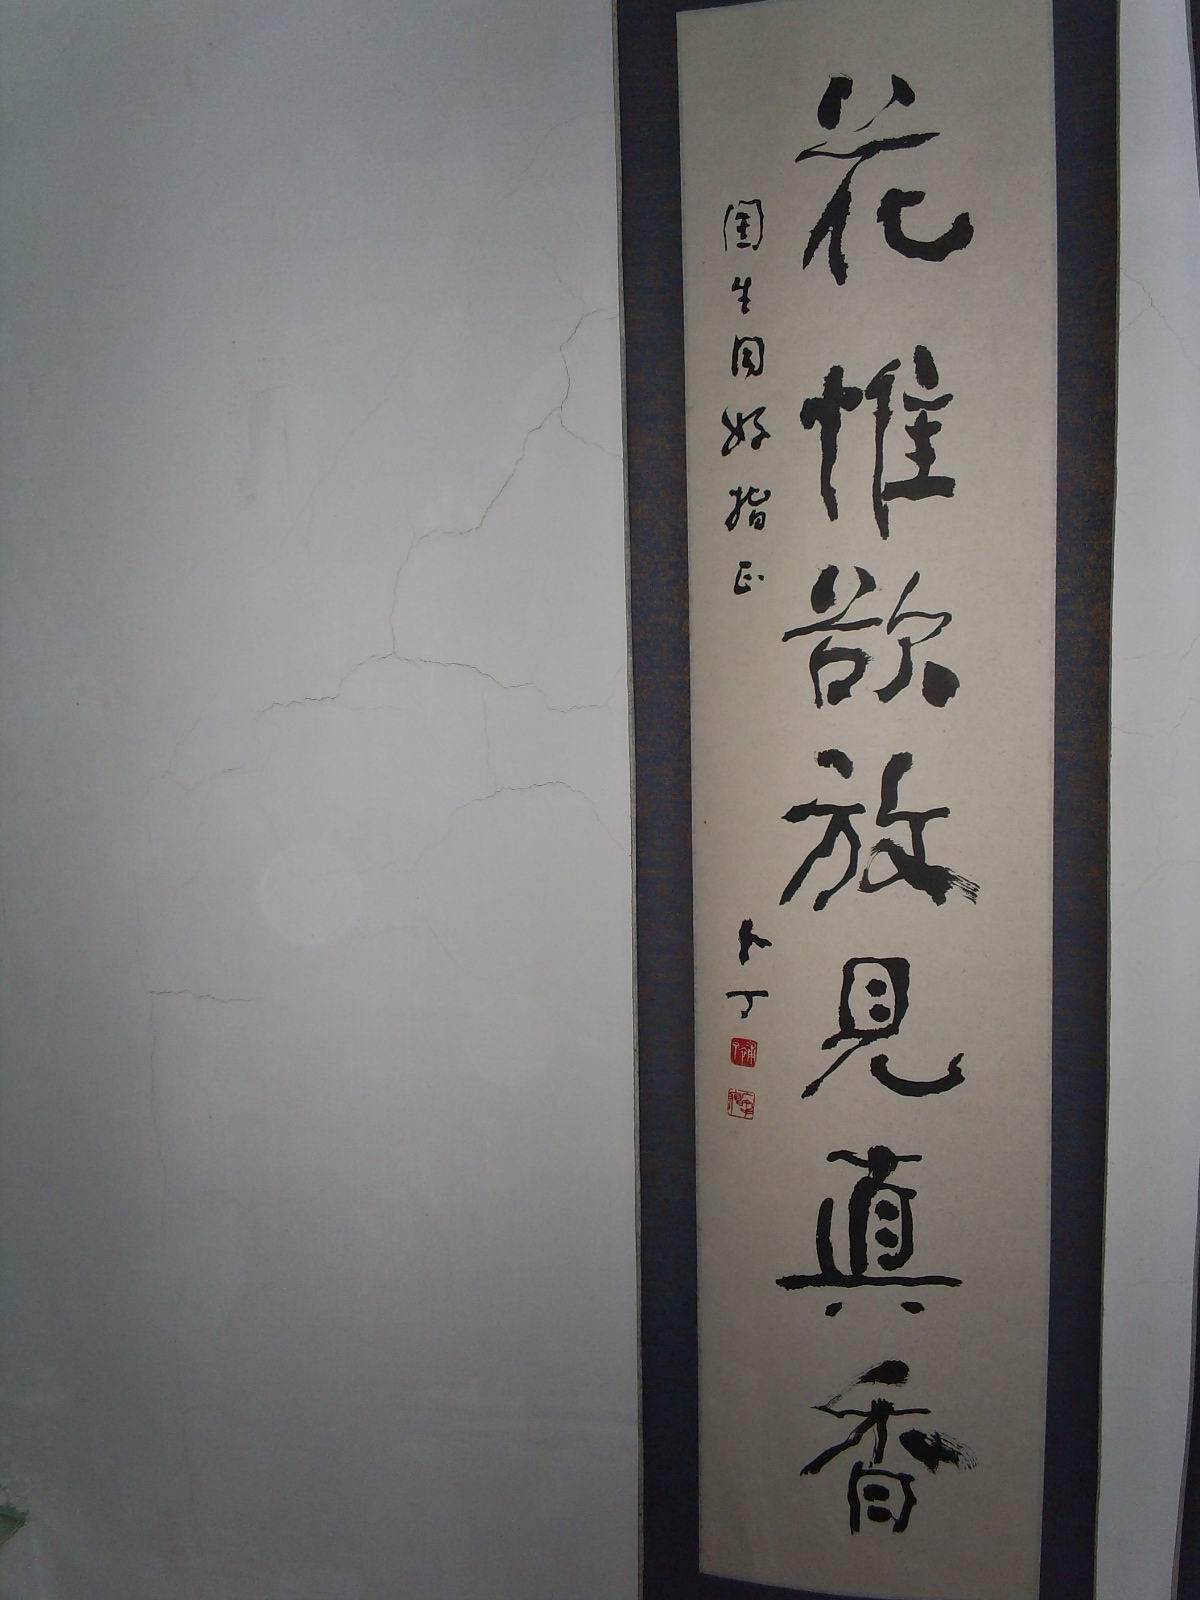 花惟欲放見真香
国生同好指正
卜丁